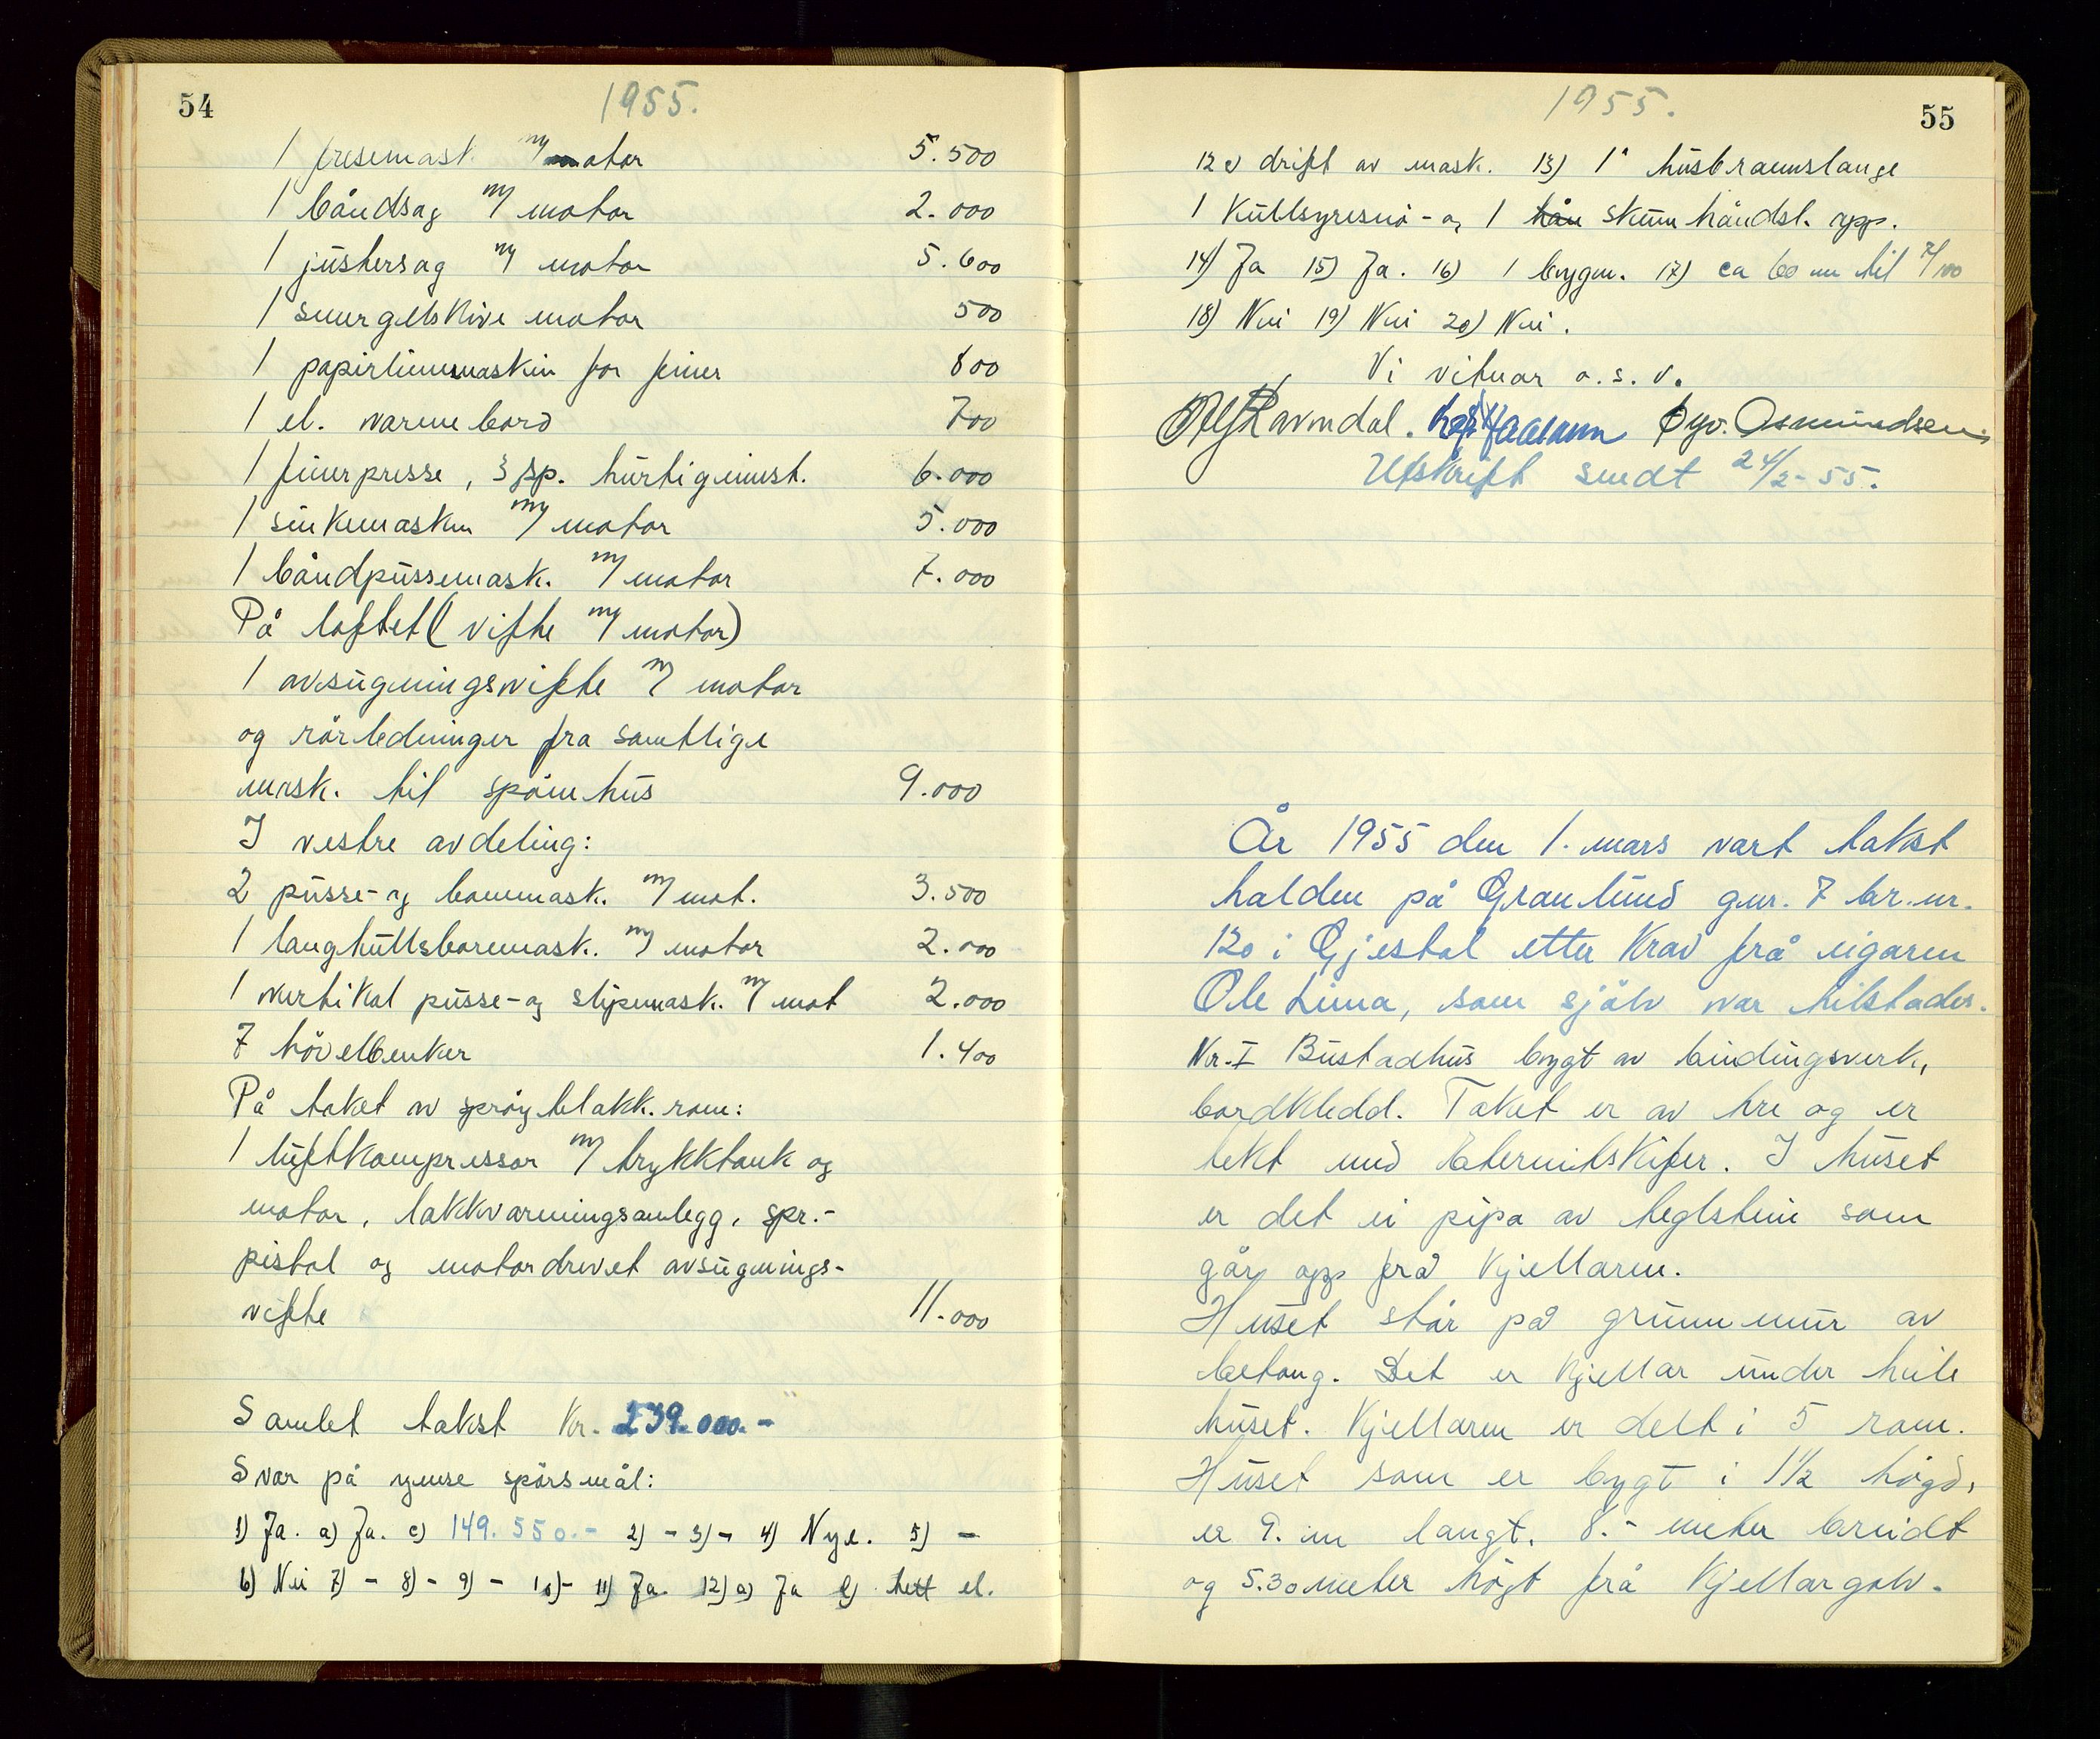 54
1955.
1 fresemask. m/ motor 5.500
1 båndsag m/ motor 2.000
1 justersag m/ motor 5.600
1 smergelskive motor 500
1 papirlimmaskin for finer 800
1 el. varmebord 700
1 finerpresse, 3 sp. hurtiginnst. 6.000
1 sinkemaskin m/ motor 5.000
1 båndpussemask. m/ motor 7.000
På loftet (vifte m/ motor)
1 avsugningsvifte m/ motor
og rörledninger fra samtlige
mask. til spönhus 9.000
I vestre avdeling:
2 pusse- og bormask. m/ mot. 3.500
1 langhullsboremask. m/ motor 2.000
1 vertikal pusse- og slipemask. m/ mot 2.000
7 hövelbenker 1.400
På taket av spröytelakk. rom:
1 luftkompressor m/ trykktank og
motor, lakkvarmingsanlegg, spr.-
pistol og motordrevet avsugnings-
vifte 11.000
Samlet takst kr. 239.000.-
Svar på ymse spörsmål:
1) Ja. a) Ja. c) 149.550.- 2) - 3) - 4) Nye. 5) -
6) Nei 7) - 8) - 9) - 10) - 11) Ja. 12) a) Ja b) hett el.
1955.
55
12 c drift av mask. 13) 1" husbrannslange
1 Kullsyresnö- og 1 hån skum håndsl. app.
14) Ja 15) Ja. 16) 1 bygn. 17) ca 60 m til 7/100
18) Nei 19) Nei 20) Nei.
Vi vitnar o.s.v.
Ravndal. Haaland Gyv. Osmundsen
Utskrift sendt 24/2-55.
År 1955 den 1. mars vart takst
halden på Granlund gnr. 7 br.nr.
120 i Gjestal etter krav frå eigaren
Ole Lima, som sjölv var tilstades.
Nr. I Bustadhus bygt av bindingsverk,
bordkledd. Taket er av tre og er
tekt med Eternitskifer. I huset
er det ei pipa av teglstein som
går opp frå kjellaren.
Huset står på grunnmur av
betong. Det er kjellar under heile
huset. Kjellaren er delt i 5 rom.
Huset som er bygt i 1 1/2 högd,
er 9. m langt, 8.- meter breidt
og 5.30 meter högt frå kjellargolv.